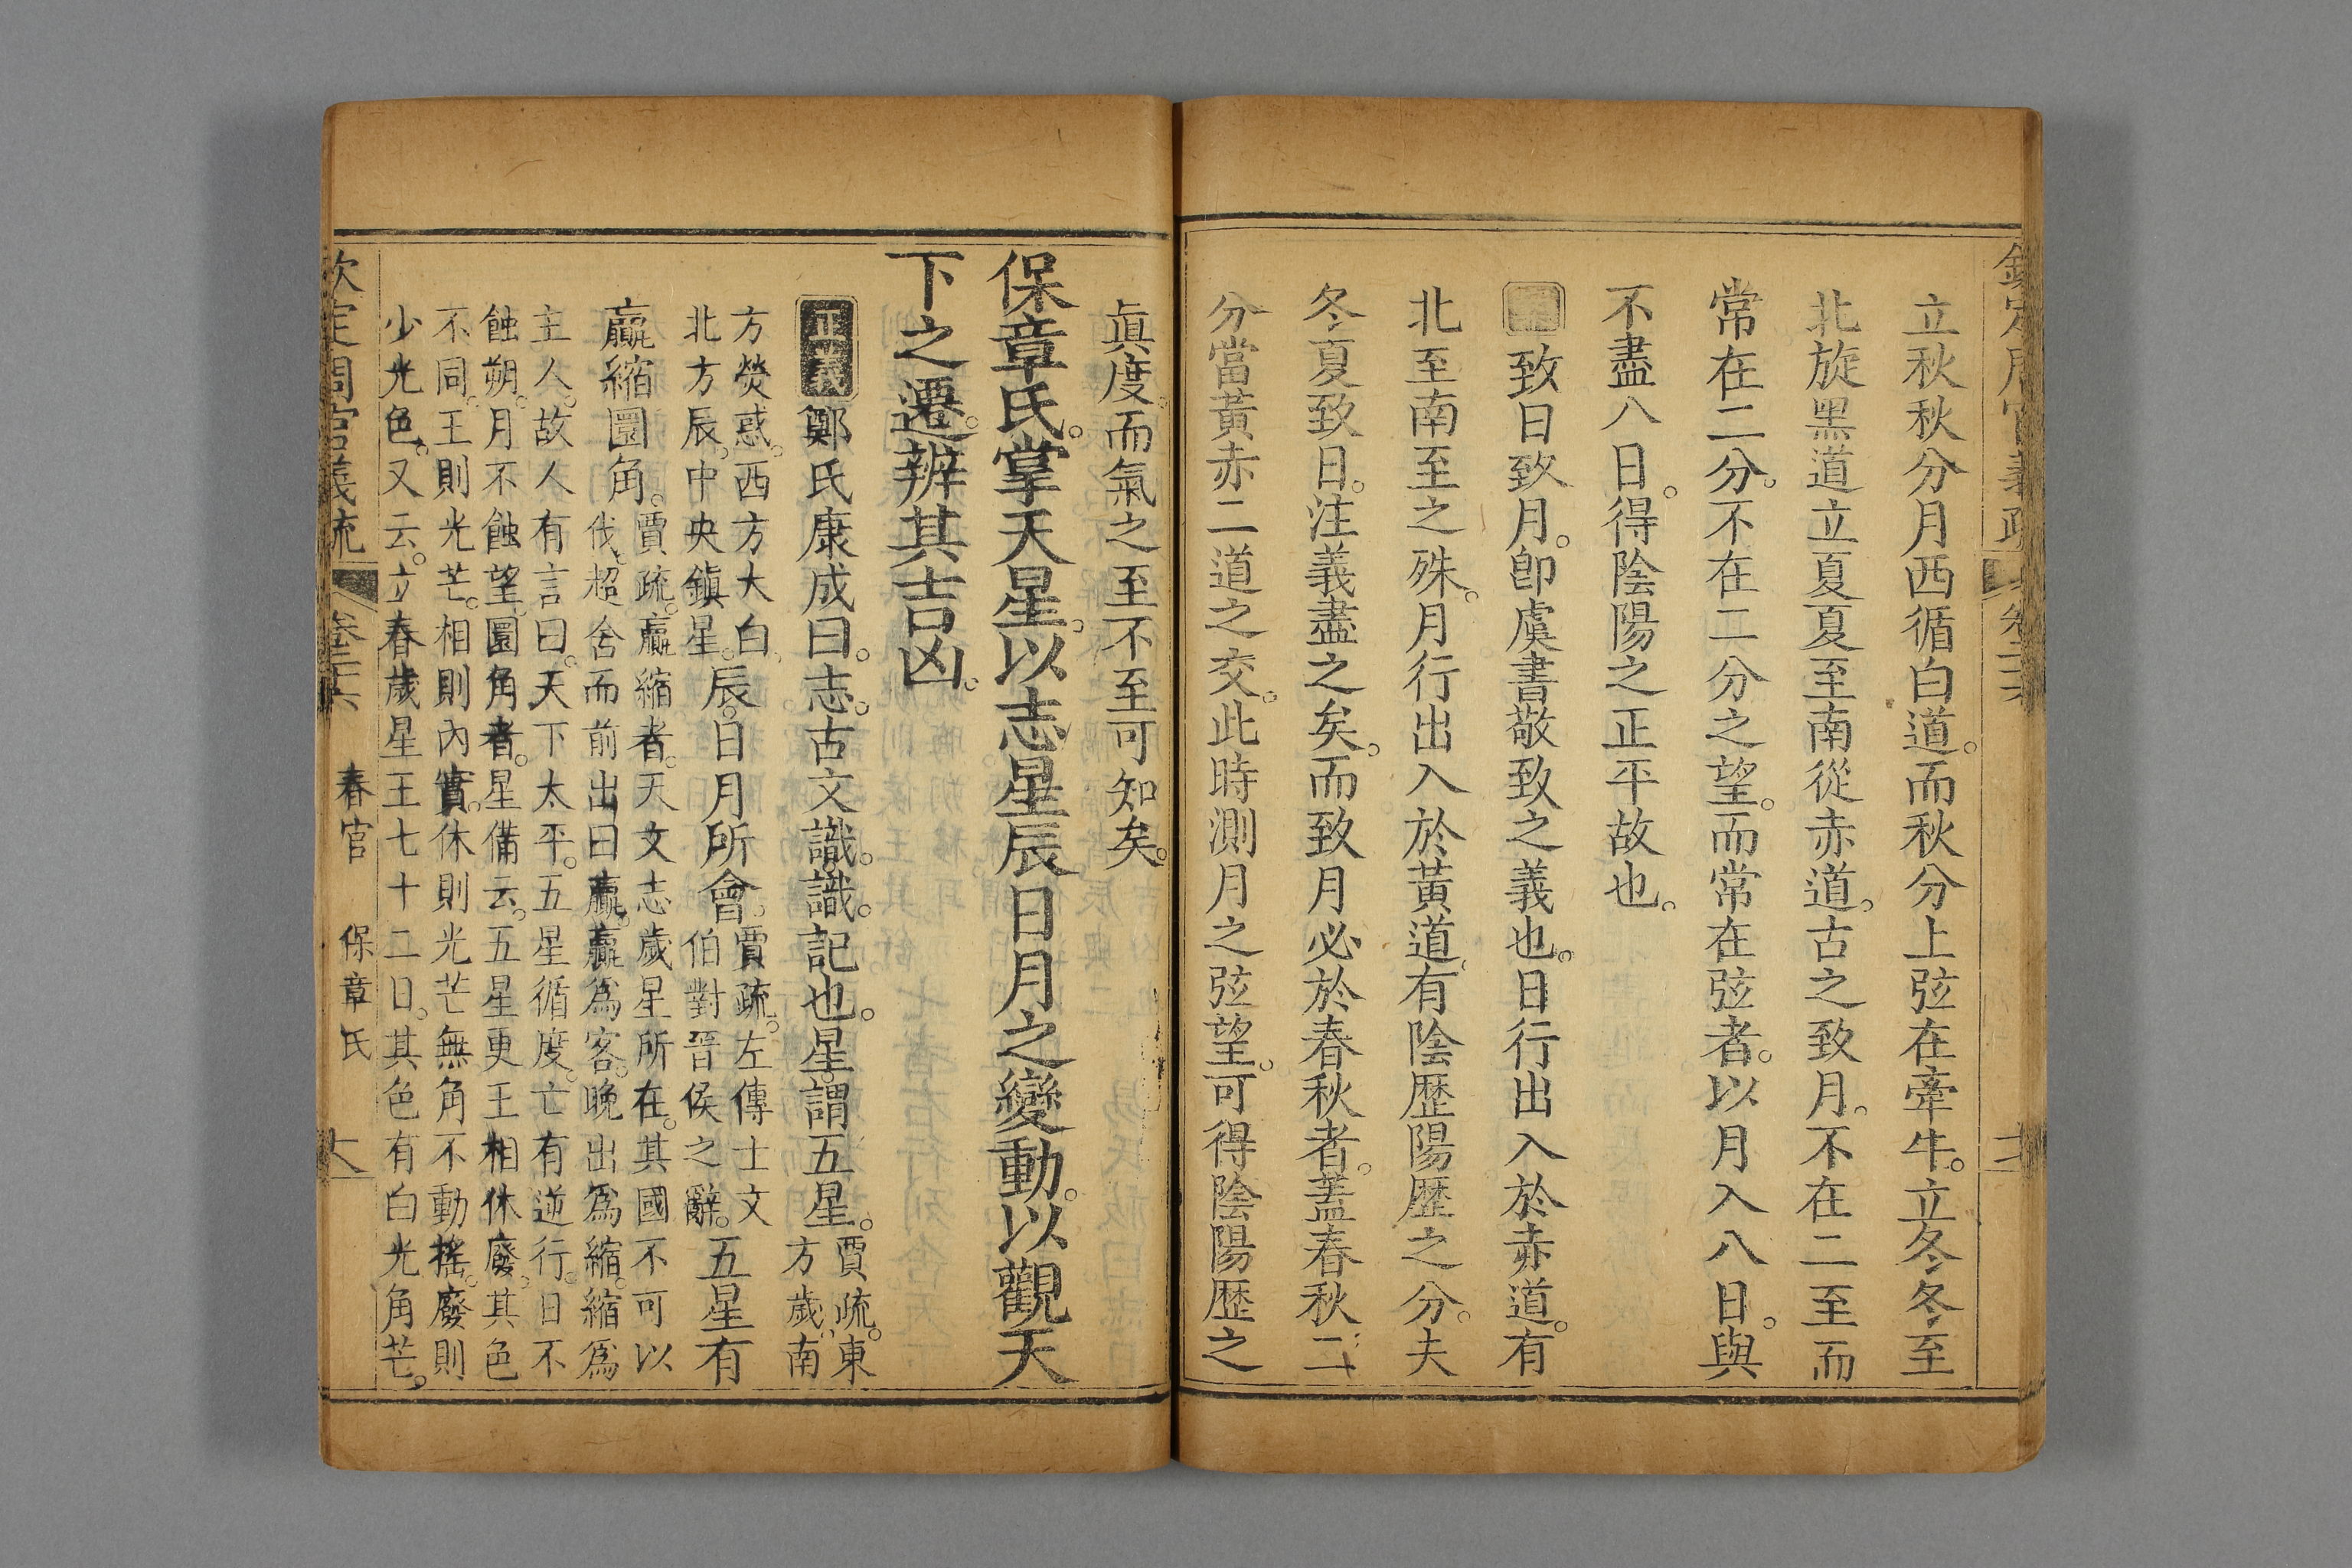 欽定周官義疏 卷二十六
立秋秋分月西循白道。而秋分上弦在牽牛。立冬冬至
北旋黑道立夏夏至南從赤道。古之致月。不在二至而
常在二分。不在二分之望。而常在弦者。以月入八日。與
不盡八日。得陰陽之正平故也。
致日致月。卽虞書敬致之義也。日行出入於赤道。有
北至南至之殊。月行出入於黃道。有陰歷陽歷之分。夫
冬夏致日。注義盡之矣。而致月必於春秋者。蓋春秋二
分當黃赤二道之交。此時測月之弦望。可得陰陽歷之
眞度。而氣之至不至可知矣。
保章氏。掌天星。以志星辰日月之變動。以觀天
下之遷。辨其吉凶。
正義鄭氏康成曰。志。古文識。識。記也。星。謂五星。
賈疏。東
方歲。南
方熒惑。西方大白。
北方辰。中央鎮星。
辰。日月所會。
賈疏。左傳士文
伯對晉侯之辭。
五星有
贏縮圜角。
賈疏。贏縮者。天文志歲星所在。其國不可以
伐。超舍而前出曰贏。贏爲客。晚出爲縮。縮爲
主人。故人有言曰。天下太平。五星循度。亡有逆行。日不
蝕朔。月不蝕望。圜角者。星備云。五星更王相休廢。其色
不同。王則光芒。相則內實。休則光芒無角不動搖。廢則
少光色。又云。立春歲星王七十二日。其色有白光角芒。
欽定周官義疏 卷二十六 春官 保章氏